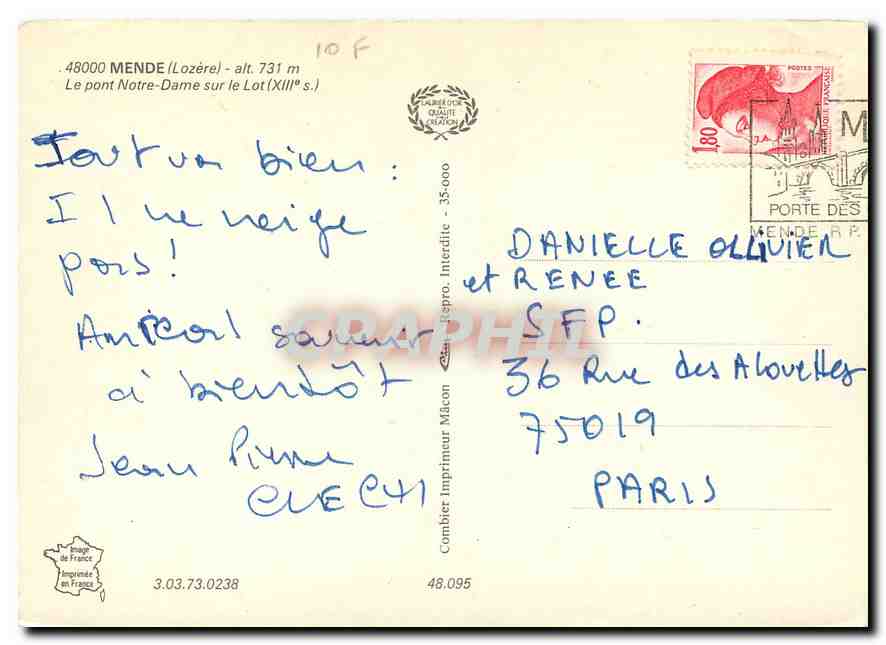 10 F
48000 MENDE (Lozère) - alt. 731 m
Le pont Notre-Dame sur le Lot (XIIIe s.)
LAURIER D'OR
QUALITÉ
CRÉATION
Tout va bien :
Il ne neige
pas !
Amical souvenir
à bientôt
Jean Pierre
Combier Imprimeur Mâcon
Repro. Interdite - 35-000
POSTES
1,80
RÉPUBLIQUE FRANÇAISE
M
PORTE DES
MENDE R.P.
DANIELLE OLLIVIER
et RENEE
SFP.
36 Rue des Alouettes
75019
PARIS
CPRAPHIL
Image
de France
Imprimée
en France
3.03.73.0238
48.095